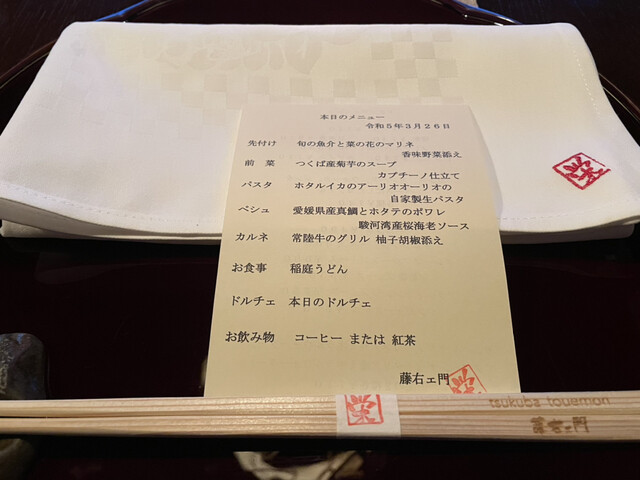 本日のメニュー
令和5年3月26日
先付け 旬の魚介と菜の花のマリネ
香味野菜添え
前 菜 つくば産菊芋のスープ
カプチーノ仕立て
パスタ ホタルイカのアーリオオーリオの
自家製生パスタ
ペシュ 愛媛県産真鯛とホタテのポワレ
駿河湾産桜海老ソース
カルネ 常陸牛のグリル 柚子胡椒添え
お食事 稲庭うどん
ドルチェ 本日のドルチェ
お飲み物 コーヒー または 紅茶
藤右ェ門
tsukuba touemon
藤右ェ門